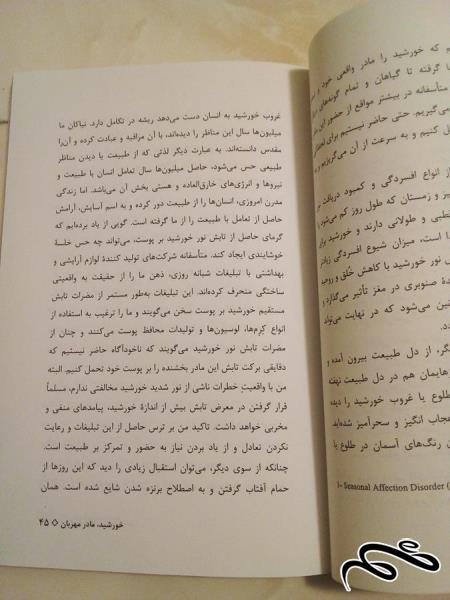 م که خورشید را مادر واقعی خود و
را گرفته تا گیاهان و تمام گونه‌های
متأسفانه در بیشتر مواقع از حضور این
می‌گیریم. حتی حاضر نیستیم برای
ل کنیم و به سرعت از آن می‌گریزیم و
از انواع افسردگی و کمبود دریافت
یز و زمستان که طول روز کم می‌شود
قطبی و طولانی دارند و خورشید برای
دا است، میزان شیوع افسردگی زیادتر
نور خورشید با کاهش خلق و
ده صنوبری در مغز تأثیر می‌گذارد و
نین می‌شود که در نهایت می‌تواند
ردد.
یگر، از دل طبیعت بیرون آمده و
رهایمان هم در دل طبیعت نهفته
طلوع یا غروب خورشید را دیده
عجاب انگیز و سحرآمیز شده‌اید.
ن رنگ‌های آسمان در طلوع یا
1- Seasonal Affection Disorder (
غروب خورشید به انسان دست می‌دهد ریشه در تکامل دارد. نیاکان ما
میلیون‌ها سال این مناظر را دیده‌اند، با آن مراقبه و عبادت کرده و آن را
مقدس دانسته‌اند. به عبارت دیگر لذتی که از طبیعت یا دیدن مناظر
طبیعی حس می‌شود، حاصل میلیون‌ها سال تعامل انسان با طبیعت و
نیروها و انرژی‌های خارق‌العاده و هستی بخش آن می‌باشد. اما زندگی
مدرن امروزی، انسان‌ها را از طبیعت دور کرده و به اسم آسایش، آرامش
حاصل از تعامل با طبیعت را از ما گرفته است. گویی از یاد برده‌ایم که
گرمای حاصل از تابش نور خورشید بر پوست، می‌تواند چه حس خلسهٔ
خوشایندی ایجاد کند. متأسفانه شرکت‌های تولید کنندهٔ لوازم آرایشی و
بهداشتی با تبلیغات شبانه روزی، ذهن ما را از حقیقت به واقعیتی
ساختگی منحرف کرده‌اند. این تبلیغات به‌طور مستمر از مضرات تابش
مستقیم خورشید بر پوست سخن می‌گویند و ما را ترغیب به استفاده از
انواع کرم‌ها، لوسیون‌ها و تولیدات محافظ پوست می‌کنند و چنان از
مضرات تابش نور خورشید می‌گویند که ناخودآگاه حاضر نیستیم که
دقایقی برکت تابش این مادر بخشنده را بر پوست خود تحمل کنیم. البته
من با واقعیتِ خطرات ناشی از نور شدید خورشید مخالفتی ندارم، مسلماً
قرار گرفتن در معرض تابش بیش از اندازهٔ خورشید، پیامدهای منفی و
مخربی خواهد داشت. تاکید من بر ترس حاصل از این تبلیغات و رعایت
نکردن تعادل و از یاد بردن نیاز به حضور و تمرکز بر طبیعت است.
چنانکه از سوی دیگر، می‌توان استقبال زیادی را دید که این روزها از
حمام آفتاب گرفتن و به اصطلاح برنزه شدن شایع شده است. همان
خورشید، مادر مهربان ◇ ۴۵